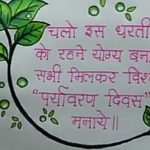 चलो इस धरती
को रहने योग्य बना
सभी मिलकर विश्
"पर्यावरण दिवस"
मनाये॥